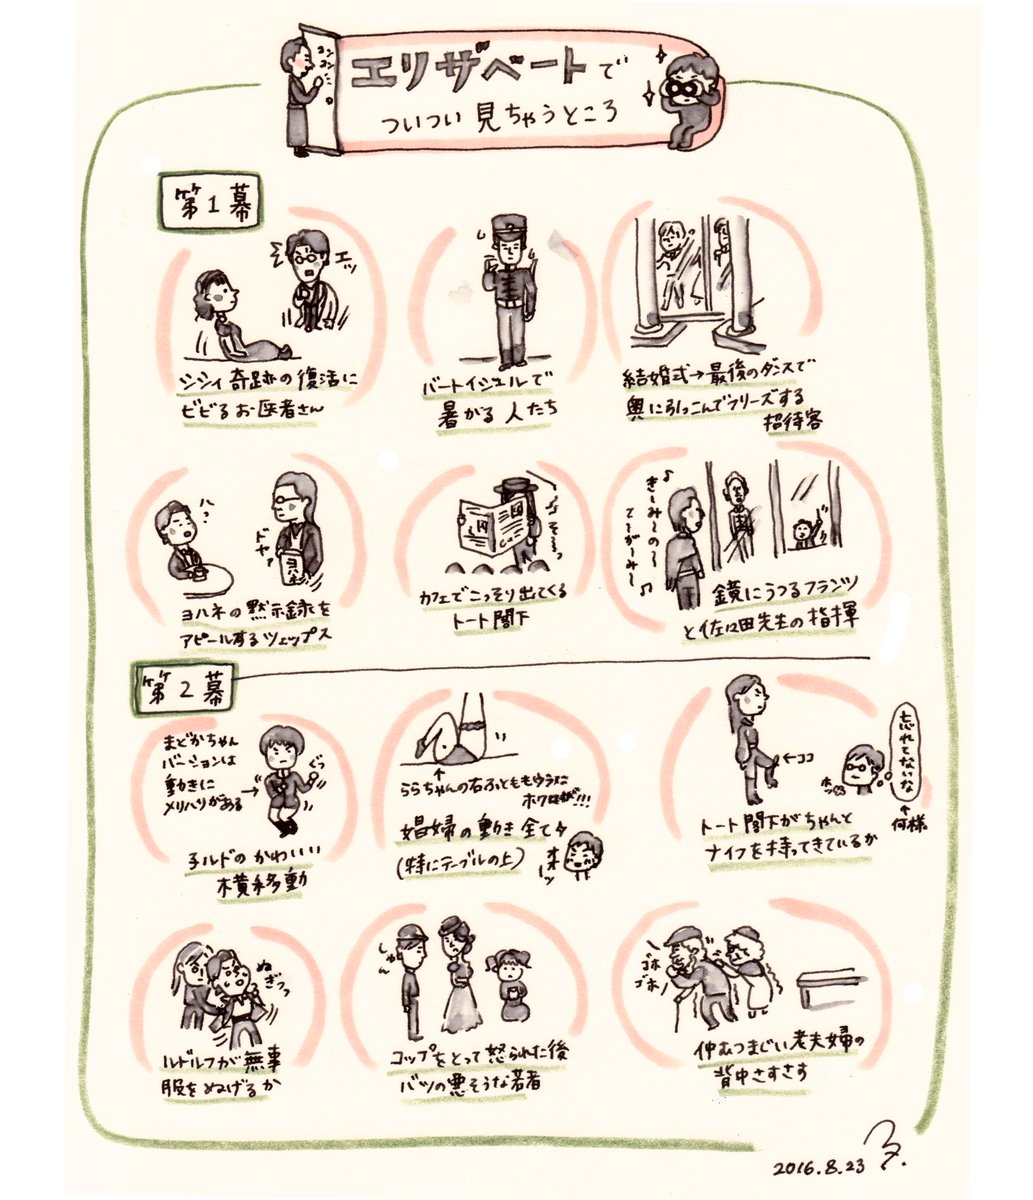 コンコン
エリザベートで
ついつい見ちゃうところ
第1幕
エッ
シシィ奇跡の復活に
ビビるお医者さん
バートイシュルで
暑がる人たち
結婚式→最後のダンスで
奥に引っこんでフリーズする
招待客
ハッ
ドヤァ
ヨハネ
ヨハネの黙示録を
アピールするツェップス
そろっ
カフェでこっそり出てくる
トート閣下
♪きーみーのー
てーがーみー♪
鏡にうつるフランツ
と佐々田先生の指揮
第2幕
まどかちゃん
バージョンは
動きに
メリハリがある→
ぐっ
子ルドのかわいい
横移動
↑
ららちゃんの右ふとももウラに
ホクロが!!!
娼婦の動き全て
(特にテーブルの上)
オォーッ
←ココ
忘れてないな
ホッ
↑
何様
トート閣下がちゃんと
ナイフを持ってきているか
ぬぎっっ
ルドルフが無事
服をぬげるか
しゅん
コップをとって怒られた後
バツの悪そうな若者
ゴホ
ゴホ
仲むつまじい老夫婦の
背中さすさす
2016.8.23